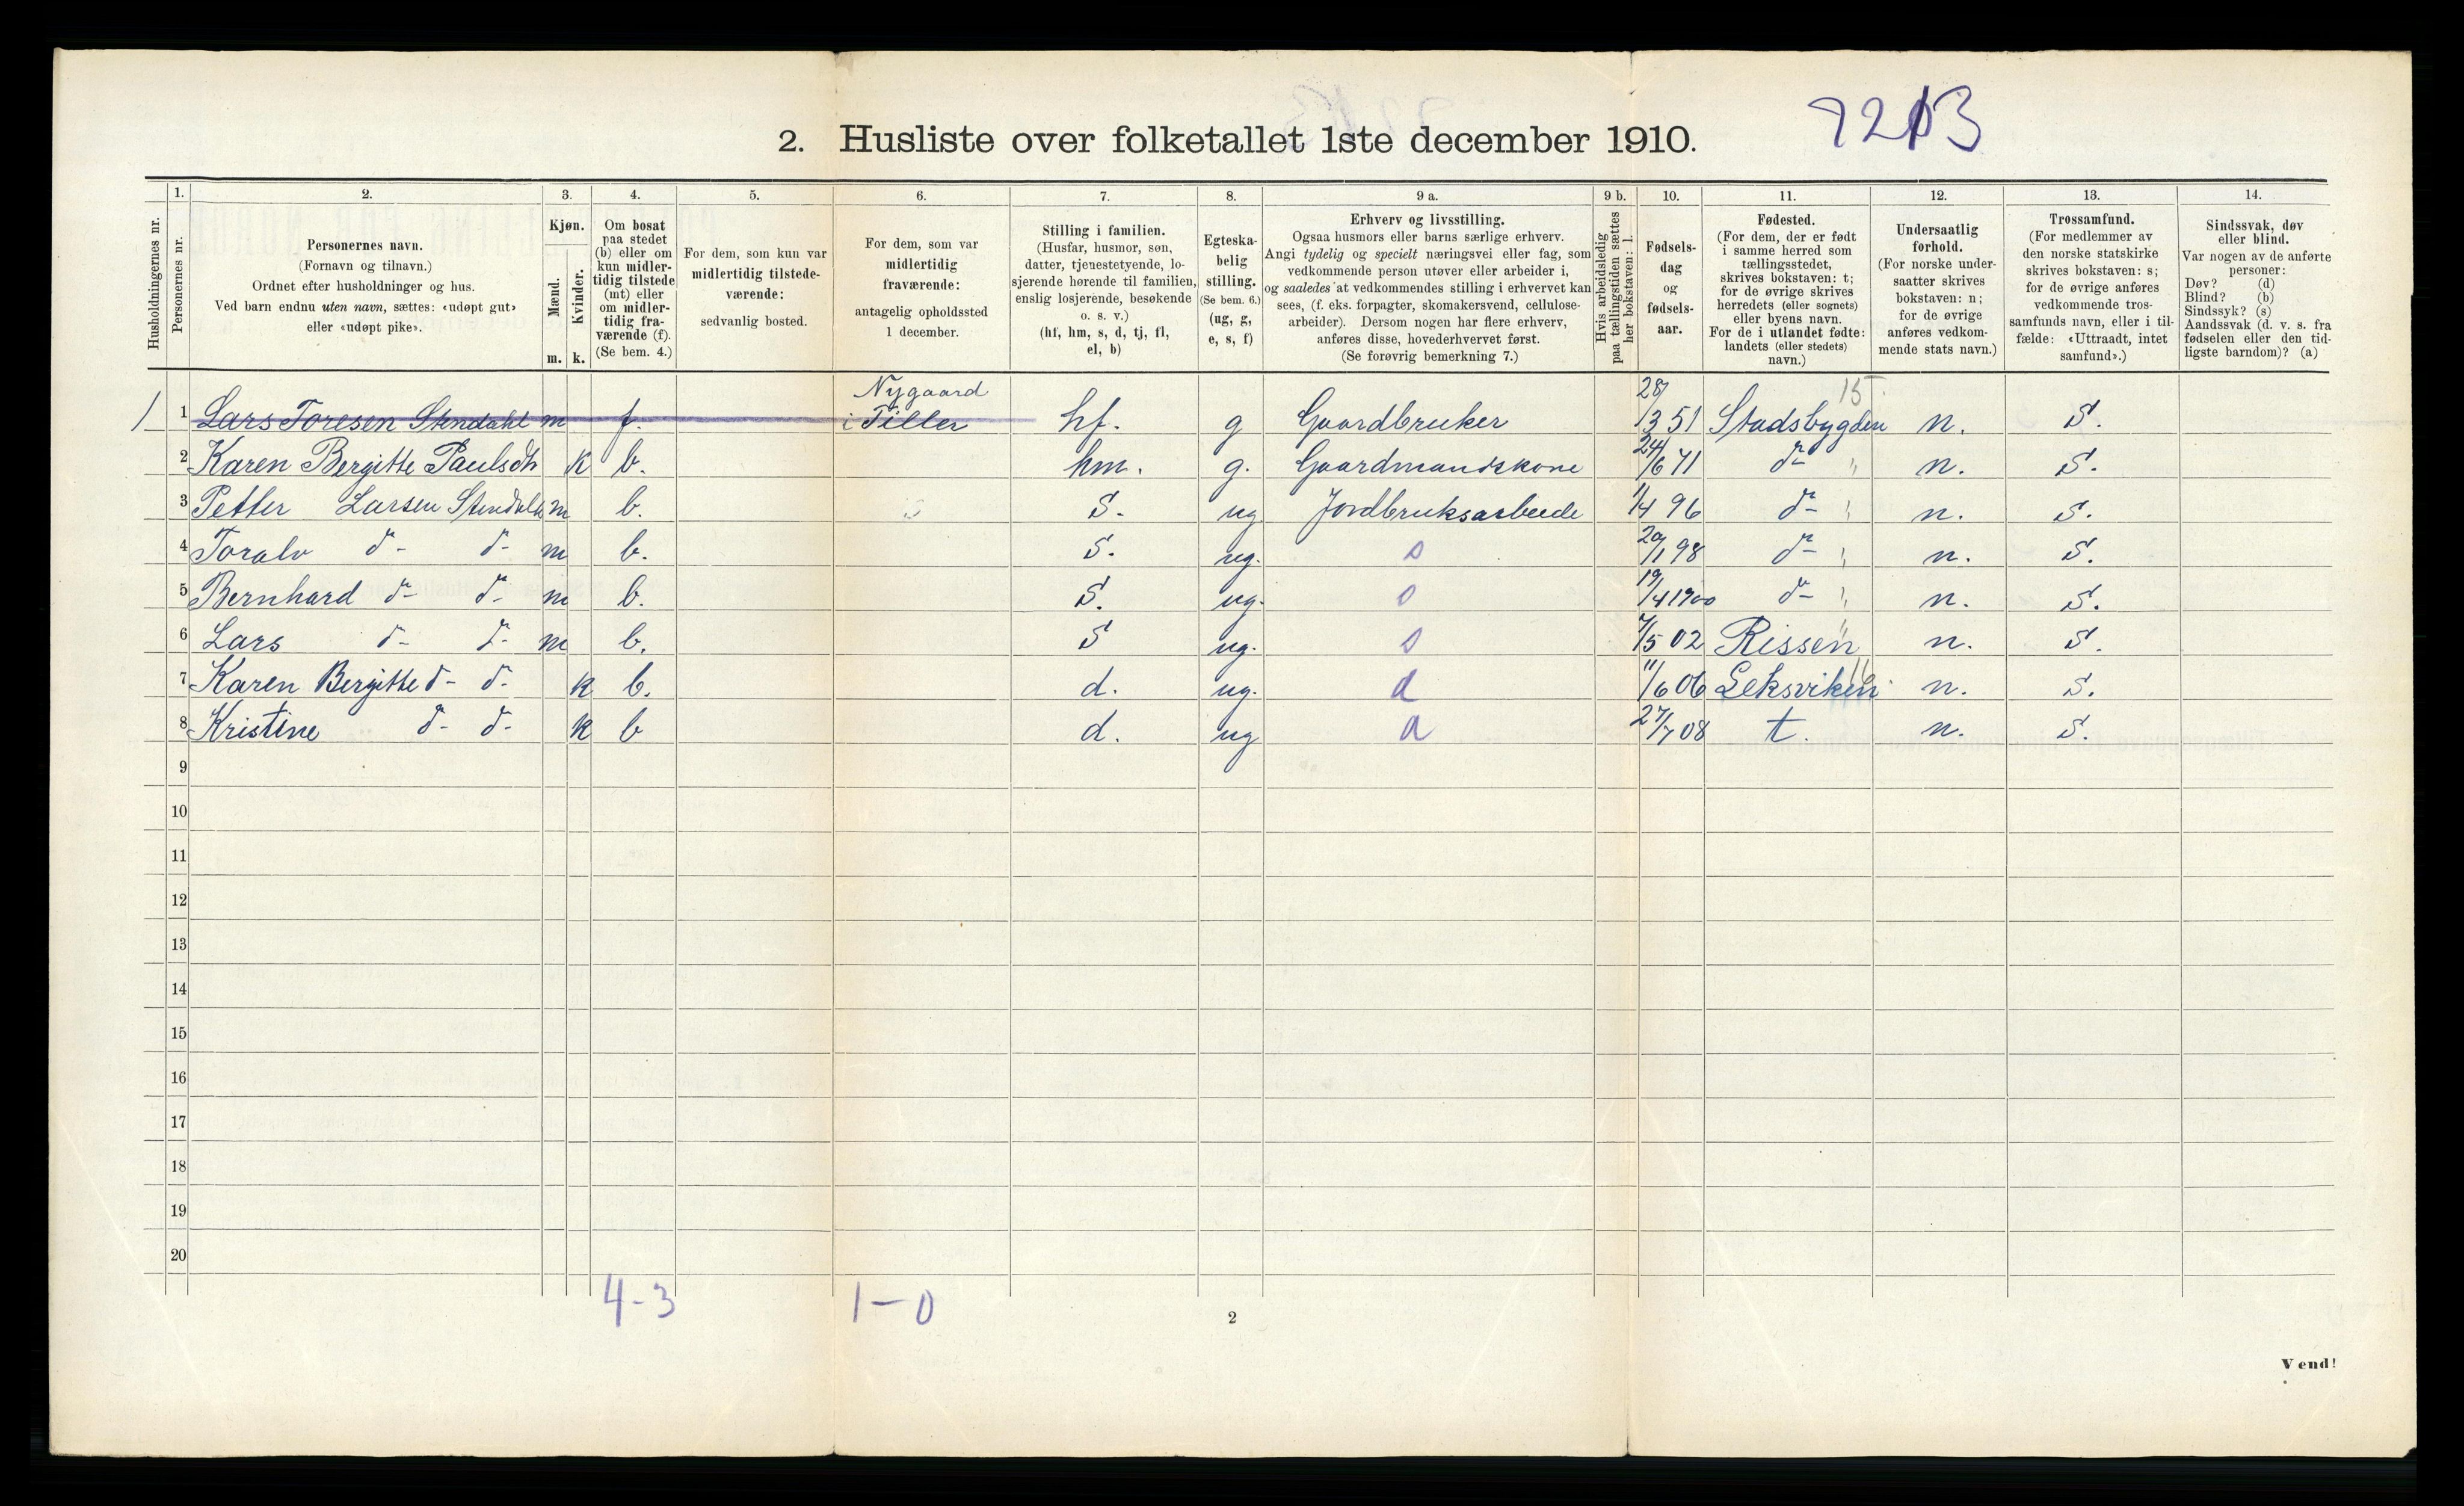 7213
2. Husliste over folketallet 1ste december 1910.
Husholdningernes nr.
1.
Personernes nr.
2.
Personernes navn.
(Fornavn og tilnavn.)
Ordnet efter husholdninger og hus.
Ved barn endnu uten navn, sættes: «udøpt gut»
eller «udøpt pike».
3.
Kjøn.
Mænd.
Kvinder.
m. k.
4.
Om bosat
paa stedet
(b) eller om
kun midler-
tidig tilstede
(mt) eller
om midler-
tidig fra-
værende (f).
(Se bem. 4.)
5.
For dem, som kun var
midlertidig tilstede-
værende:
sedvanlig bosted.
6.
For dem, som var
midlertidig
fraværende:
antagelig opholdssted
1 december.
7.
Stilling i familien.
(Husfar, husmor, søn,
datter, tjenestetyende, lo-
sjerende hørende til familien,
enslig losjerende, besøkende
o. s. v.)
(hf, hm, s, d, tj, fl,
el, b)
8.
Egteska-
belig
stilling.
(Se bem. 6.)
(ug, g,
e, s, f)
9 a.
Erhverv og livsstilling.
Ogsaa husmors eller barns særlige erhverv.
Angi tydelig og specielt næringsvei eller fag, som
vedkommende person utøver eller arbeider i,
og saaledes at vedkommendes stilling i erhvervet kan
sees, (f. eks. forpagter, skomakersvend, cellulose-
arbeider). Dersom nogen har flere erhverv,
anføres disse, hovederhvervet først.
(Se forøvrig bemerkning 7.)
9 b.
Hvis arbeidsledig
paa tællingstiden sættes
her bokstaven: l.
10.
Fødsels-
dag
og
fødsels-
aar.
11.
Fødested.
(For dem, der er født
i samme herred som
tællingsstedet,
skrives bokstaven: t;
for de øvrige skrives
herredets (eller sognets)
eller byens navn.
For de i utlandet fødte:
landets (eller stedets)
navn.)
12.
Undersaatlig
forhold.
(For norske under-
saatter skrives
bokstaven: n;
for de øvrige
anføres vedkom-
mende stats navn.)
13.
Trossamfund.
(For medlemmer av
den norske statskirke
skrives bokstaven: s;
for de øvrige anføres
vedkommende tros-
samfunds navn, eller i til-
fælde: «Uttraadt, intet
samfund».)
14.
Sindssvak, døv
eller blind.
Var nogen av de anførte
personer:
Døv? (d)
Blind? (b)
Sindssyk? (s)
Aandssvak (d. v. s. fra
fødselen eller den tid-
ligste barndom)? (a)
Nygaard 15
1 1 Lars Toresen Stendahl m f. i Tiller hf. g Gaardbruker 28/3 51 Stadsbygden n. S.
2 Karen Bergitte Paulsdt k b. hm. g. Gaardmandskone 24/6 71 do " n. S.
3 Petter Larsen Stendahl m b. S. ug Jordbruksarbeide 1/4 96 do " n. S.
4 Toralv do do m b. S. ug. s 20/1 98 do " n. S.
5 Bernhard do do m b. S. ug. s 19/4 1900 do " n. S.
6 Lars do do m b. S ug. s 7/5 02 Rissen " n. S.
7 Karen Bergitte do do k b. d. ug. d 11/6 06 Leksviken n. S.
8 Kristine do do k b d. ug d 27/7 08 t. n. S.
9
10
11
12
13
14
15
16
17
18
19
20
4-3 1-0
2
Vend!